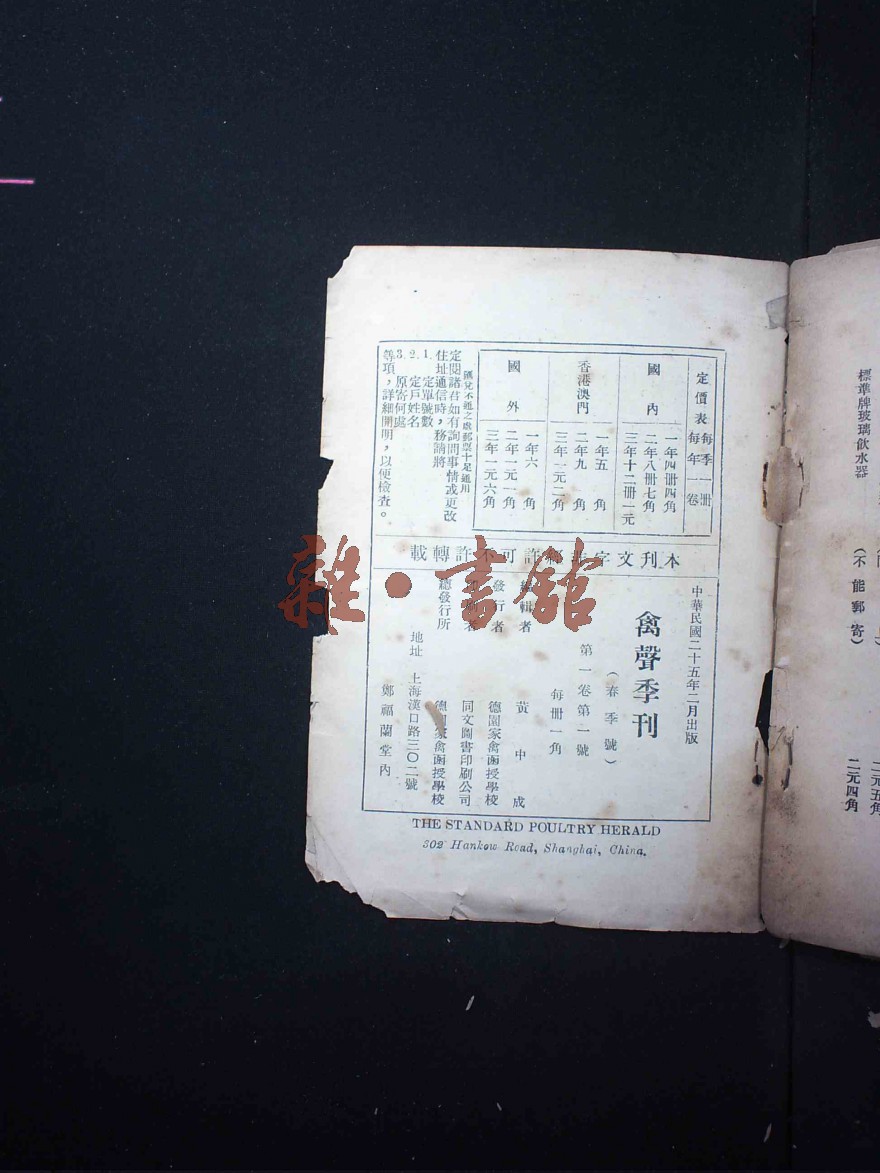 定價表
每季一冊
每年一卷
國內
一年四冊四角
二年八冊七角
三年十二冊一元
香港澳門
一年五角
二年九角
三年一元二角
國外
一年六角
二年一元一角
三年一元六角
匯兌不通之處郵票十足通用
定閱諸君如有詢問事情或更改
住址通信時，務請將
1. 定單號數
2. 定戶姓名
3. 原寄何處
等項，詳細開明，以便檢查。
本刊文字非經許可不許轉載
中華民國二十五年二月出版
禽聲季刊
（春季號）
第一卷第一號
每冊一角
編輯者 黃中成
發行者 德園家禽函授學校
同文圖書印刷公司
總發行所 德園家禽函授學校
地址 上海漢口路三〇二號
鄭福蘭堂內
THE STANDARD POULTRY HERALD
302 Hankow Road, Shanghai, China.
標準牌玻璃飲水器
（不能郵寄）
二元五角
二元四角
雜·書館